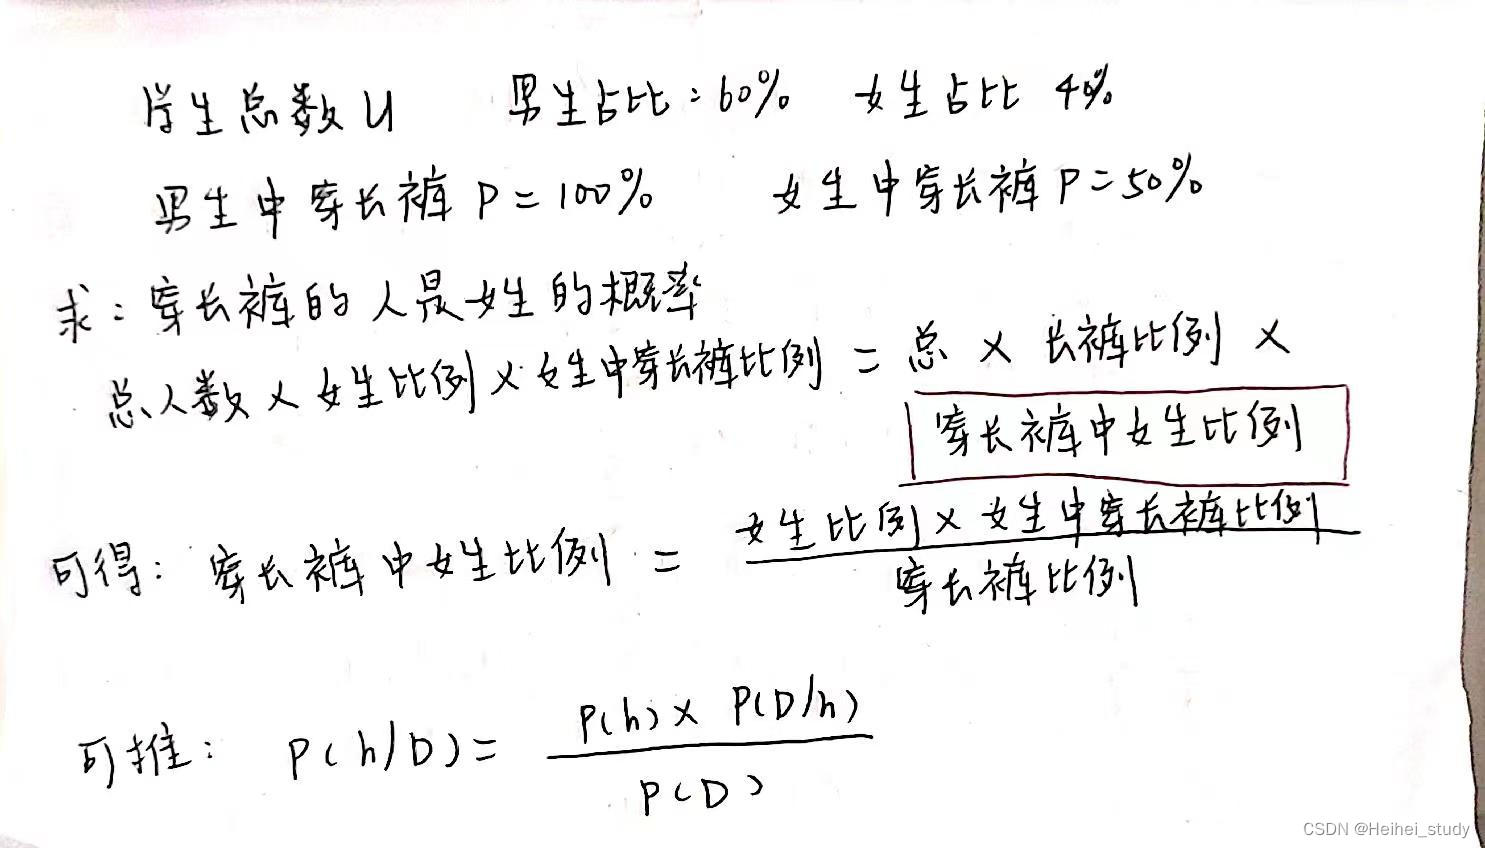 学生总数 U 男生占比：60% 女生占比 40%
男生中穿长裤 P = 100% 女生中穿长裤 P = 50%
求：穿长裤的人是女生的概率
总人数 × 女生比例 × 女生中穿长裤比例 = 总 × 长裤比例 ×
穿长裤中女生比例
女生比例 × 女生中穿长裤比例
可得：穿长裤中女生比例 =
穿长裤比例
P(h) × P(D/h)
可推：P(h/D) =
P(D)
CSDN @Heihei_study